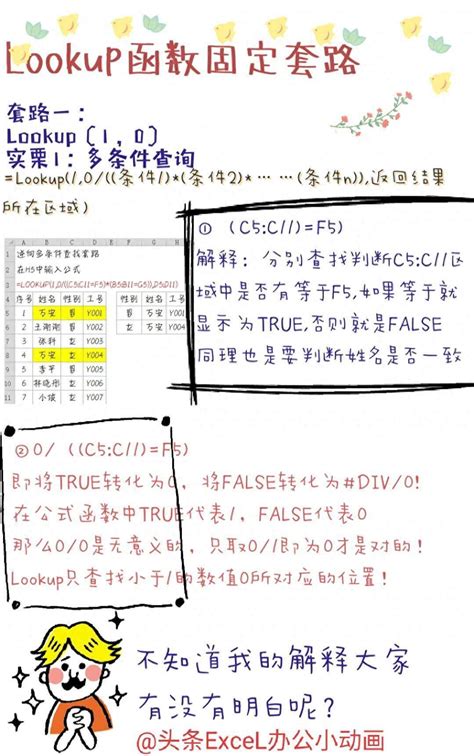 LookuP函数固定套路
套路一：
Lookup（1，0）
实栗1：多条件查询
=Lookup(1,0/((条件1)*(条件2)*……(条件n)),返回结果
所在区域)
A B C D E F G H
1 逆向多条件查找套路
2 在H5中输入公式
3 =LOOKUP(1,0/((C5:C11=F5)*(B5:B11=G5)),D5:D11)
4 序号 姓名 性别 工号 性别 姓名 工号
5 1 万宝 男 Y001 男 万宝 Y001
6 2 王刚刚 男 Y002 女 万宝 Y004
7 3 张轩 女 Y003
8 4 万宝 女 Y004
9 5 李平 男 Y005
10 6 女 Y006
11 7 小埃 女 Y007
① (C5:C11)=F5)
解释：分别查找判断C5:C11区
域中是否有等于F5,如果等于就
显示为TRUE,否则就是FALSE
同理也是要判断姓名是否一致
② 0/ ((C5:C11)=F5)
即将TRUE转化为0，将FALSE转化为#DIV/0!
在公式函数中TRUE代表1，FALSE代表0
那么0/0是无意义的，只取0/1即为0才是对的！
Lookup只查找小于1的数值0所对应的位置！
不知道我的解释大家
有没有明白呢？
@头条ExceL办公小动画